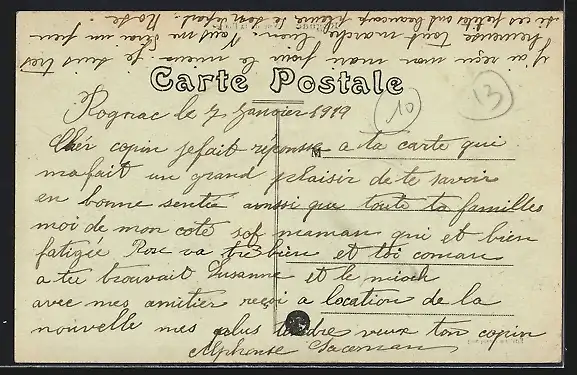 j'ai reçu mon mon pour le mieux. je suis très
heureuse tout marche bien. Vous me ferai un peu
si ces petits ont beaucoup pleuré le don depart.
Carte Postale
Rognac le 7 Janvier 1919
10
13
Chér copin je fait réponse a ta carte qui
ma fait un grand plaisir de te savoir
en bonne sentée ainssi que toute ta familles
moi de mon coté sof maman qui et bien
fatigée Rose va tres bien et toi coman
a tu trouvait Susanne et le mioch
avec mes amitier reçoi a location de la
nouvelle mes plus tendre veux ton copin
Alphonse